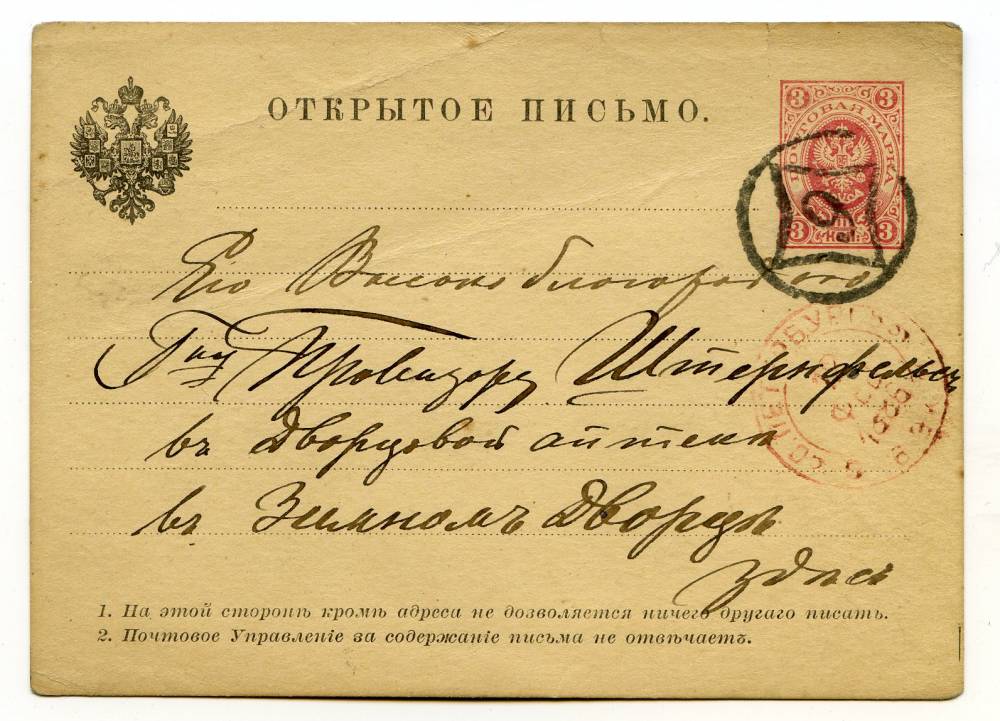 ОТКРЫТОЕ ПИСЬМО.
3 3
ПОЧТОВАЯ МАРКА
3 КОП. 3
Его Высокоблагородію
Гну Провизору Штернфельсъ
въ Дворцовой аптекѣ
въ Зимномъ Дворцѣ
здѣсь
1. На этой сторонѣ кромѣ адреса не дозволяется ничего другаго писать.
2. Почтовое Управленіе за содержаніе письма не отвѣчаетъ.